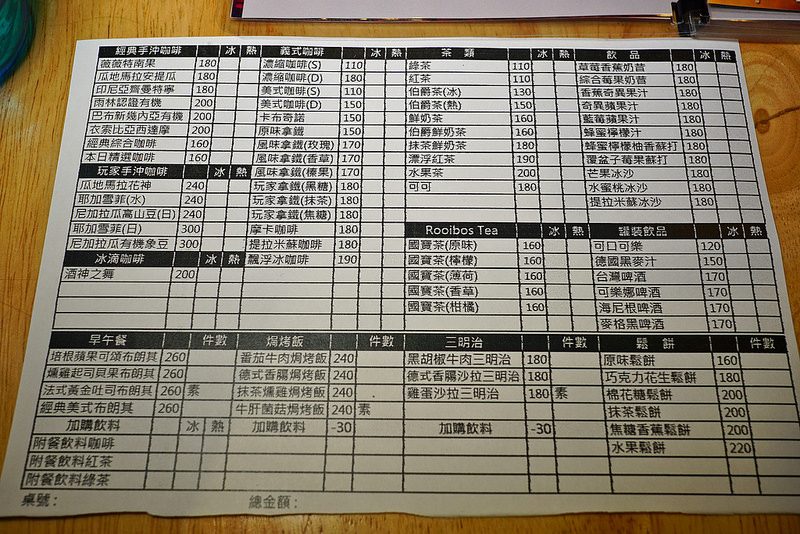 經典手沖咖啡 冰 熱 義式咖啡 冰 熱 茶 類 冰 熱 飲 品 冰 熱
薇薇特南果 180 濃縮咖啡(S) 110 綠茶 110 草莓香蕉奶昔 180
瓜地馬拉安提瓜 180 濃縮咖啡(D) 180 紅茶 110 綜合莓果奶昔 180
印尼亞齊曼特寧 180 美式咖啡(S) 110 伯爵茶(冰) 130 香蕉奇異果汁 180
雨林認證有機 200 美式咖啡(D) 150 伯爵茶(熱) 150 奇異蘋果汁 180
巴布新幾內亞有機 200 卡布奇諾 150 鮮奶茶 160 藍莓蘋果汁 180
衣索比亞西達摩 200 原味拿鐵 150 伯爵鮮奶茶 160 蜂蜜檸檬汁 180
經典綜合咖啡 160 風味拿鐵(玫瑰) 170 抹茶鮮奶茶 180 蜂蜜檸檬柚香蘇打 180
本日精選咖啡 160 風味拿鐵(香草) 170 漂浮紅茶 190 覆盆子莓果蘇打 180
玩家手沖咖啡 冰 熱 風味拿鐵(榛果) 170 水果茶 200 芒果冰沙 180
瓜地馬拉花神 240 玩家拿鐵(黑糖) 180 可可 180 水蜜桃冰沙 180
耶加雪菲(水) 240 玩家拿鐵(抹茶) 180 提拉米蘇冰沙 180
尼加拉瓜高山豆(日) 240 玩家拿鐵(焦糖) 180
耶加雪菲(日) 300 摩卡咖啡 180 Rooibos Tea 冰 熱 罐裝飲品 冰 熱
尼加拉瓜有機象豆 300 提拉米蘇咖啡 180 國寶茶(原味) 160 可口可樂 120
冰滴咖啡 冰 熱 飄浮冰咖啡 190 國寶茶(檸檬) 160 德國黑麥汁 150
酒神之舞 200 國寶茶(薄荷) 160 台灣啤酒 170
國寶茶(香草) 160 可樂娜啤酒 170
國寶茶(柑橘) 160 海尼根啤酒 170
麥格黑啤酒 170
早午餐 件數 焗烤飯 件數 三明治 件數 鬆 餅 件數
培根蘋果可頌布朗其 260 番茄牛肉焗烤飯 240 黑胡椒牛肉三明治 180 原味鬆餅 160
燻雞起司貝果布朗其 260 德式香腸焗烤飯 240 德式香腸沙拉三明治 180 巧克力花生鬆餅 180
法式黃金吐司布朗其 260 素 抹茶燻雞焗烤飯 240 雞蛋沙拉三明治 180 素 棉花糖鬆餅 200
經典美式布朗其 260 牛肝菌菇焗烤飯 240 素 抹茶鬆餅 200
加購飲料 冰 熱 加購飲料 -30 加購飲料 -30 焦糖香蕉鬆餅 200
附餐飲料咖啡 水果鬆餅 220
附餐飲料紅茶
附餐飲料綠茶
桌號： 總金額：